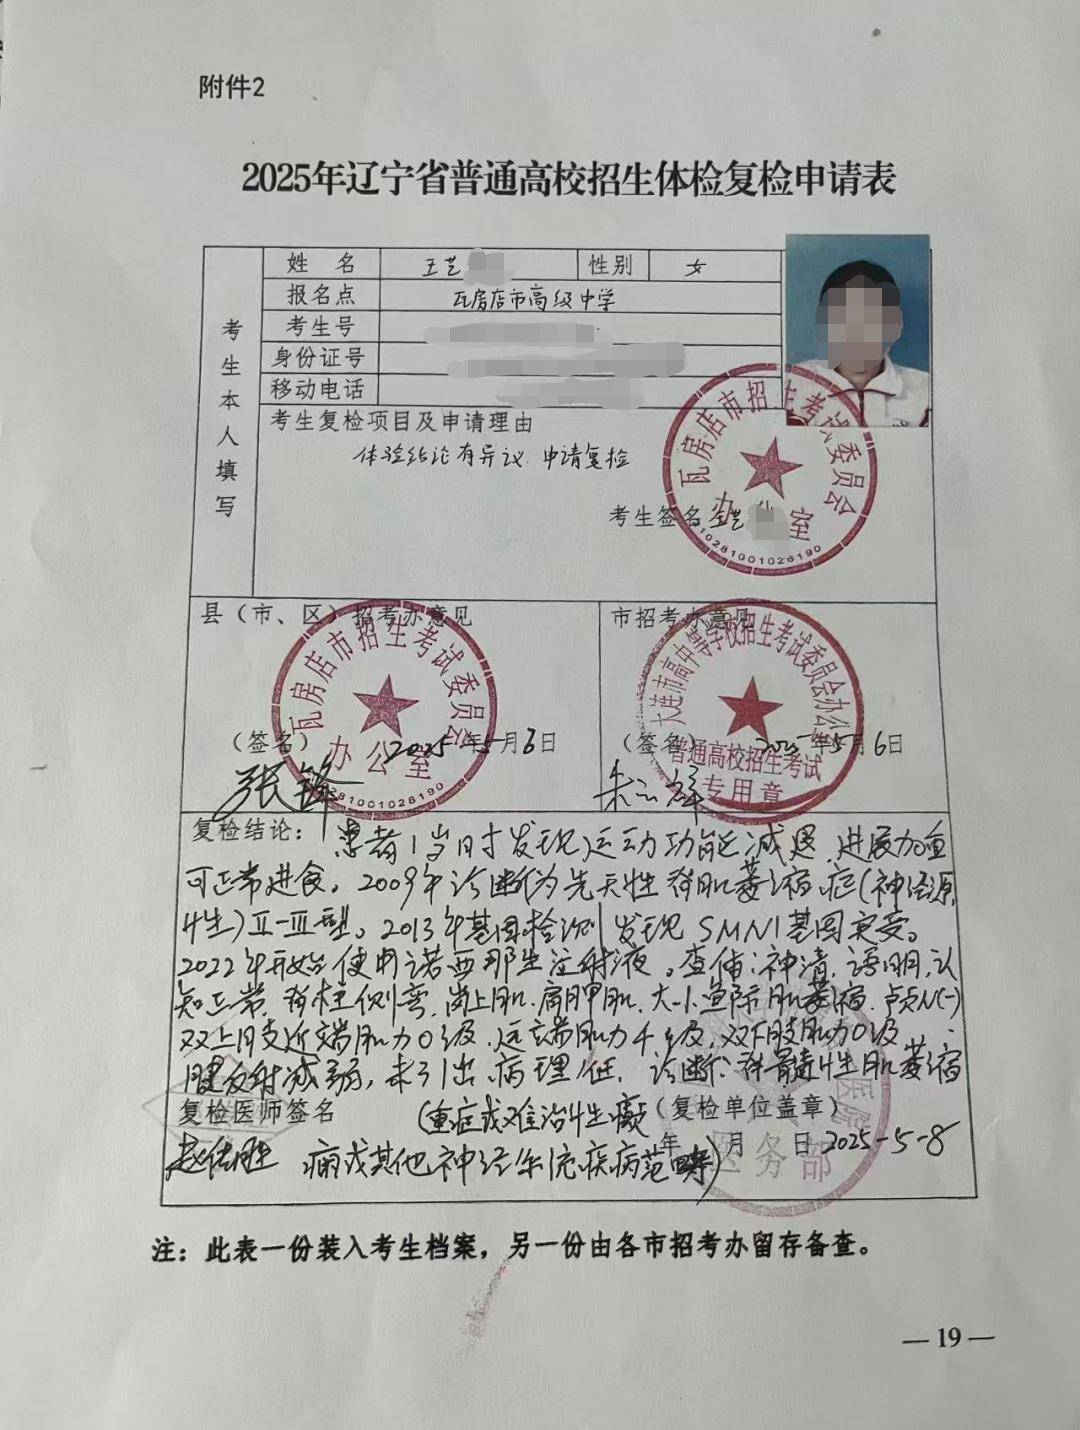 附件2
2025年辽宁省普通高校招生体检复检申请表
考生本人填写
姓 名 王艺 性别 女
报名点 瓦房店市高级中学
考生号
身份证号
移动电话
考生复检项目及申请理由
体验结论有异议 申请复检
考生签名 王艺
瓦房店市招生考试委员会
办公室
县（市、区）招考办意见
瓦房店市招生考试委员会
办公室
（签名） 2025年5月6日
张锋
市招考办意见
大连市高中等学校招生考试委员会办公室
普通高校招生考试
专用章
（签名） 2025年5月6日
复检结论：患者1岁时发现运动功能减退，进展加重
可正常进食。2009年诊断为先天性脊肌萎缩症(神经源
性)Ⅱ-Ⅲ型。2013年基因检测发现SMN1基因突变。
2022年开始使用诺西那生注射液。查体：神清，语明，认
知正常，脊柱侧弯，岗上肌、肩胛肌、大小鱼际肌萎缩，颅N(-)
双上肢近端肌力0级，远端肌力4级，双下肢肌力0级，
腱反射减弱，未引出病理征。诊断：脊髓性肌萎缩
复检医师签名 (重症或难治性癫 （复检单位盖章）
痫或其他神经系统疾病范畴) 年 月 日 2025-5-8
医务部
注：此表一份装入考生档案，另一份由各市招考办留存备查。
— 19 —